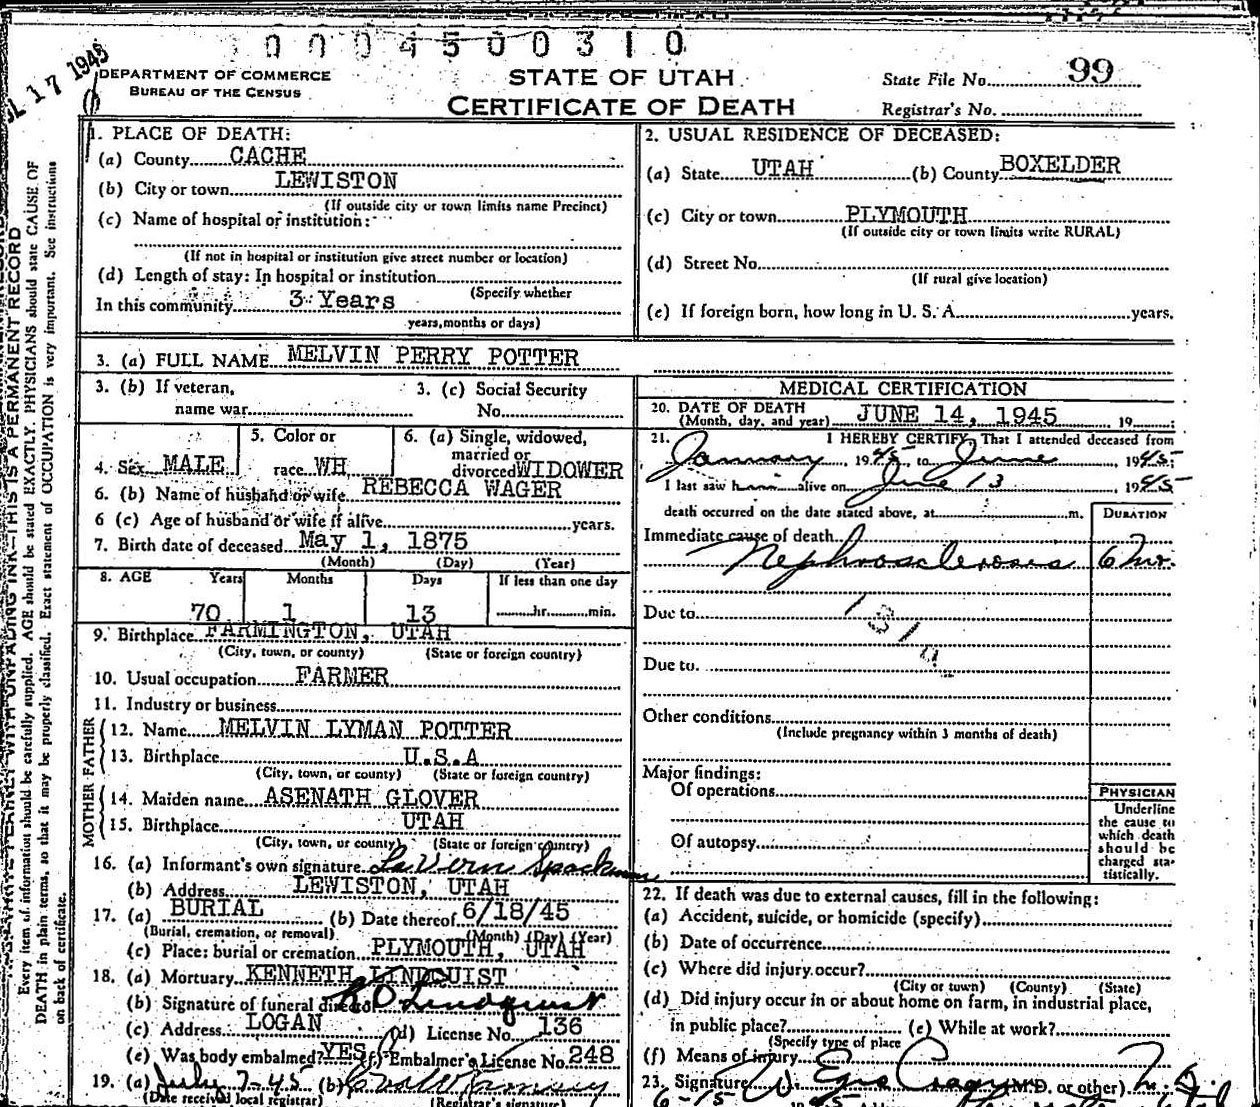 0 0 0 4 5 0 0 3 1 0
JUL 17 1945
DEPARTMENT OF COMMERCE
BUREAU OF THE CENSUS
STATE OF UTAH
CERTIFICATE OF DEATH
State File No. 99
Registrar's No.
1. PLACE OF DEATH:
(a) County CACHE
(b) City or town LEWISTON
(If outside city or town limits name Precinct)
(c) Name of hospital or institution:
(If not in hospital or institution give street number or location)
(d) Length of stay: In hospital or institution
(Specify whether
In this community 3 Years
years, months or days)
2. USUAL RESIDENCE OF DECEASED:
(a) State UTAH (b) County BOXELDER
(c) City or town PLYMOUTH
(If outside city or town limits write RURAL)
(d) Street No.
(If rural give location)
(e) If foreign born, how long in U. S. A. years.
3. (a) FULL NAME MELVIN PERRY POTTER
3. (b) If veteran,
name war
3. (c) Social Security
No.
4. Sex MALE
5. Color or
race WH
6. (a) Single, widowed,
married or
divorced WIDOWER
6. (b) Name of husband or wife REBECCA WAGER
6 (c) Age of husband or wife if alive years.
7. Birth date of deceased May 1, 1875
(Month) (Day) (Year)
8. AGE Years Months Days If less than one day
70 1 13 hr. min.
9. Birthplace FARMINGTON, UTAH
(City, town, or county) (State or foreign country)
10. Usual occupation FARMER
11. Industry or business
FATHER
12. Name MELVIN LYMAN POTTER
13. Birthplace U.S.A
(City, town, or county) (State or foreign country)
MOTHER
14. Maiden name ASENATH GLOVER
15. Birthplace UTAH
(City, town, or county) (State or foreign country)
16. (a) Informant's own signature LaVern Spackman
(b) Address LEWISTON, UTAH
17. (a) BURIAL (b) Date thereof 6/18/45
(Burial, cremation, or removal) (Month) (Day) (Year)
(c) Place: burial or cremation PLYMOUTH, UTAH
18. (a) Mortuary KENNETH LINDQUIST
(b) Signature of funeral director K D Lindquist
(c) Address LOGAN (d) License No. 136
(e) Was body embalmed? YES (f) Embalmer's License No. 248
19. (a) July 7-45 (b)
(Date received local registrar) (Registrar's signature)
MEDICAL CERTIFICATION
20. DATE OF DEATH
(Month, day, and year) JUNE 14, 1945 19
21. I HEREBY CERTIFY, That I attended deceased from
January, 1945, to June, 1945;
I last saw him alive on June 13, 1945
death occurred on the date stated above, at m.
DURATION
Immediate cause of death
Nephrosclerosis 6 mo.
Due to
131a
Due to
Other conditions
(Include pregnancy within 3 months of death)
Major findings:
Of operations
Of autopsy
PHYSICIAN
Underline
the cause to
which death
should be
charged sta-
tistically.
22. If death was due to external causes, fill in the following:
(a) Accident, suicide, or homicide (specify)
(b) Date of occurrence
(c) Where did injury occur?
(City or town) (County) (State)
(d) Did injury occur in or about home on farm, in industrial place,
in public place? (e) While at work?
(Specify type of place
(f) Means of injury
23. Signature (M.D. or other)
Every item of information should be carefully supplied. AGE should be stated EXACTLY. PHYSICIANS should state CAUSE OF
DEATH in plain terms, so that it may be properly classified. Exact statement of OCCUPATION is very important. See instructions
on back of certificate.